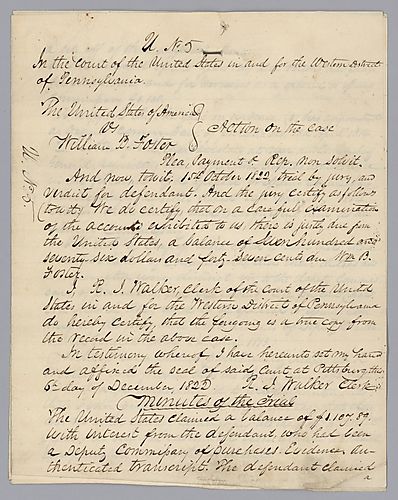 U. No. 5
In the Court of the United States in and for the Western District
of Pennsylvania.
The United States of America
vs
William B. Foster
Action on the case
Plea, Payment &
non solvit.
And now, towit, 15th October 1822, trial by jury, and
verdict for defendant. And the jury certify as follows
towit, We do certify, that on a care full examination
of the accounts exhibited to us, there is justly due from
the United States, a balance of Six hundred and
seventy six dollars and forty seven cents due Wm B.
Foster.
I R. J. Walker, Clerk of the Court of the United
States in and for the Western District of Pennsylvania
do hereby certify, that the foregoing is a true copy from
the record in the above case.
In testimony whereof I have hereunto set my hand
and affixed the seal of said Court at Pittsburg, this
6th day of December 1822. R. J. Walker Clerk
Minutes of the Trial
The United States claimed a balance of $1.107.89.
With interest from the defendant, who had been
a Deputy Commissary of Purchases. Evidence au-
thenticated transcript. The defendant claimed
a
U. No. 5.